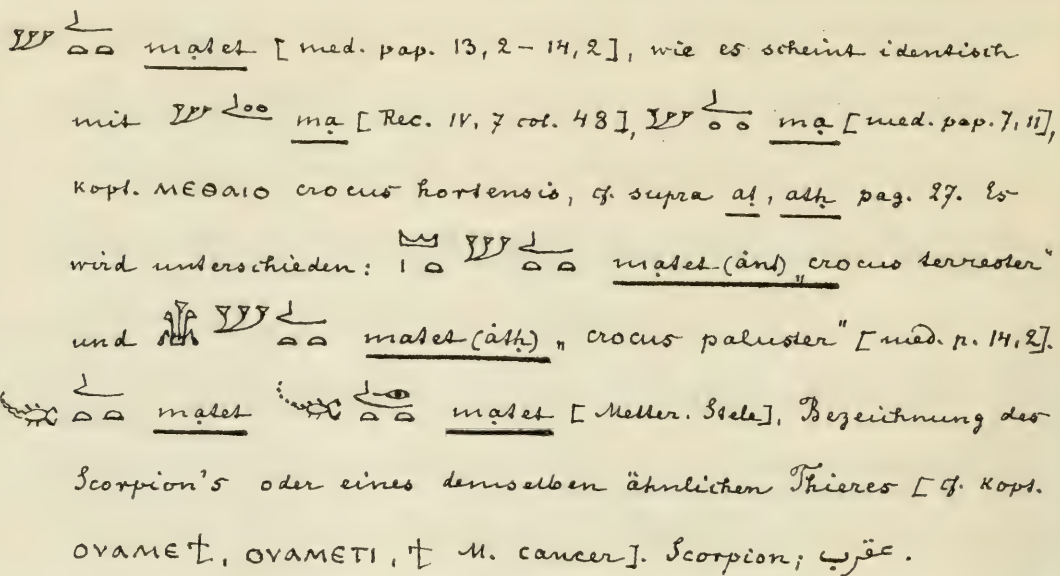 matet [med. pap. 13, 2 – 14, 2], wie es scheint identisch
mit ma [Rec. IV, 7 col. 48], ma [med. pap. 7, 11],
Kopt. ⲙⲉⲑⲁⲓⲟ crocus hortensis, cf. supra at, ath pag. 27. Es
wird unterschieden: matet (ànt) „crocus terrester“
und matet (àth) „crocus paluster“ [med. p. 14, 2].
matet matet [Metter. Stele], Bezeichnung des
Scorpion's oder eines demselben ähnlichen Thieres [cf. Kopt.
ⲟⲩⲁⲙⲉϯ, ⲟⲩⲁⲙⲉⲧⲓ, ϯ M. cancer]. Scorpion; عقرب.